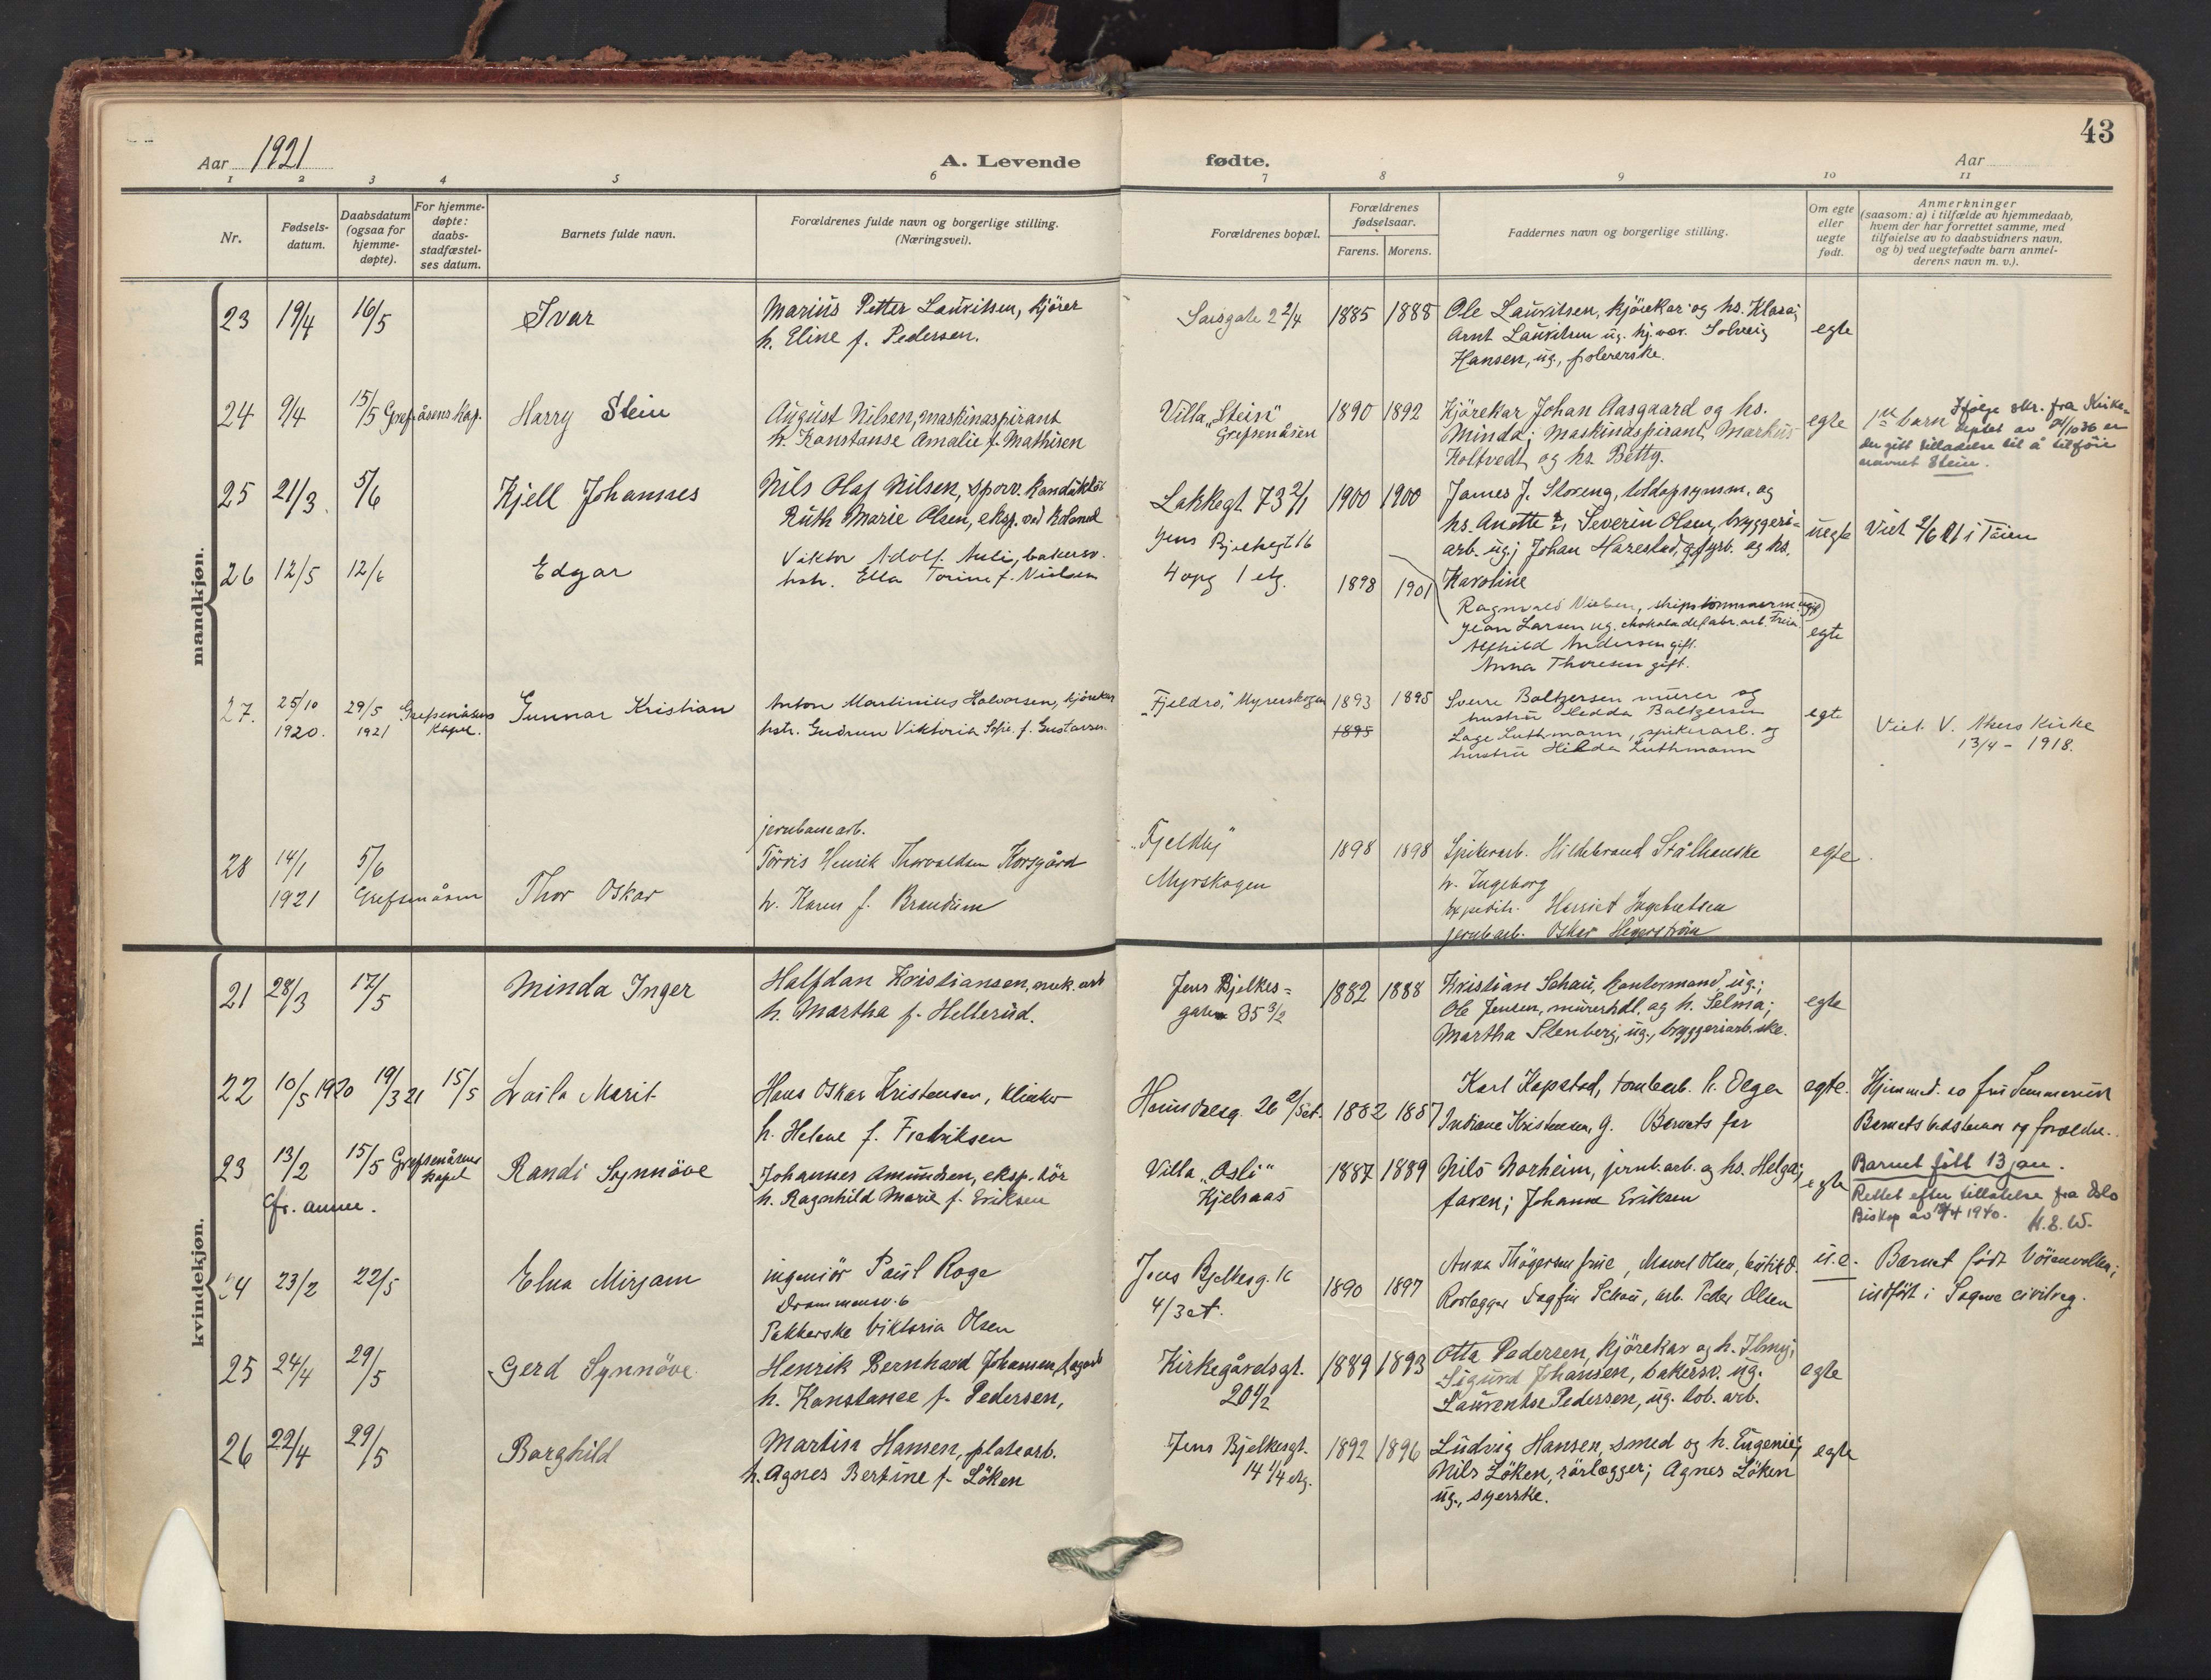 43
Aar 1921
A. Levende fødte.
Aar
1 2 3 4 5 6 7 8 9 10 11
Nr.
Fødsels-
datum.
Daabsdatum
(ogsaa for
hjemme-
døpte).
For hjemme-
døpte:
daabs-
stadfæstel-
ses datum.
Barnets fulde navn.
Forældrenes fulde navn og borgerlige stilling.
(Næringsvei).
Forældrenes bopæl.
Forældrenes
fødselsaar.
Farens. Morens.
Faddernes navn og borgerlige stilling.
Om egte
eller
uegte
født.
Anmerkninger
(saasom: a) i tilfælde av hjemmedaab,
hvem der har forrettet samme, med
tilføielse av to daabsvidners navn,
og b) ved uegtefødte barn anmel-
derens navn m. v.).
mandkjøn.
23 19/4 16/5 Ivar
Marius Petter Lauritsen, kjører
h. Eline f. Pedersen.
Sarsgate 2 2/4 1885 1888
Ole Lauritsen, kjørekar og hs. Klara;
Arnt Lauritsen ug. Solveig
Hansen, ug., polererske.
egte
24 9/4 15/5 Grefsenåsens Kap. Harry Stein
August Nilsen, maskinaspirant
h. Konstanse Amalie f. Mathisen
Villa "Stein"
Grefsenåsen
1890 1892
Kjørekar Johan Aasgaard og hs.
Minda; Maskinaspirant Markus
Holtvedt og hs. Betty.
egte
1ste barn Ifølge skr. fra Kirke-
deptet av 24/10 36 er
der gitt tilladelse til å tilføie
navnet Stein.
25 21/3 5/6 Kjell Johannes
Nils Olaf Nilsen, sporv. konduktör
Ruth Marie Olsen, eksp. ved
Lakkegt. 73 2/1 1900 1900
James J. Storeng, og
hs. Anette; Severin Olsen, bryggeri-
arb. ug; Johan Harestad, og hs.
Karoline
uegte
Viet 2/6 21 i Töien
26 12/5 12/6 Edgar
Viktor Adolf Auli, bakersv.
hstr. Ella Torine f. Nielsen
Jens Bjelkegt 16
4 opg 1 etg.
1898 1901
Ragnvald Nielsen, skipstømmerm. ugift
Jean Larsen ug. chokoladefabr. arb. Freia
Alfhild Andersen gift.
Anna Thoresen gift.
egte
27. 25/10 1920. 29/5 1921 Grefsenåsens Kapel. Gunnar Kristian
Anton Martinius Halvorsen, kjørekar
hstr. Gudrun Viktoria Sofie f. Gustavsen.
"Fjeldro", Myrerskogen 1893 1895
1895
Sverre Baltzersen murer og
hustru Hedda Baltzersen
Lage Luthmann, spikerarb. og
hustru Hilda Luthmann
egte
Viet V. Akers Kirke
13/4 - 1918.
28 14/1 1921 5/6 Grefsenåsen Thor Oskar
jernbanearb.
Tørris Henrik Thorvaldsen Korsgård
h. Karen f. Brandum
"Fjeldly"
Myrskogen
1898 1898
Spikerarb. Hildebrand Stålhanske
h. Ingeborg
Expeditr. Harriet Ingebretsen
jernbarb. Oskar Hegerström
egte.
kvindekjøn.
21 28/3 17/5 Minda Inger
Halfdan Kristiansen, mek. arb
h. Martha f. Hellerud.
Jens Bjelkes-
gate 35 3/2
1882 1888
Kristian Schau, kontormand, ug.;
Ole Jensen, murerhdl. og h. Selma;
Martha Stenberg, ug., bryggeriarb.ske.
egte
22 10/5 1920 19/3 21 15/5 Laila Marit
Hans Oskar Kristensen, klinker
h. Helene f. Fredriksen
Hausmannsg. 26 2/5 et. 1882 1887
Karl Kopstad, tomtearb. h. Olga
Indiane Kristensen, g. Barnets far
egte.
Hjemmed. av fru Semmerud
Barnets bedstemor og foreldre.
23 13/2 15/5 Grefsenåsens kapel Randi Synnöve
cfr. anm.
Johannes Amundsen, eksp.tör
h. Ragnhild Marie f. Eriksen
Villa "Osli"
Kjelsaas
1887 1889
Nils Norheim, jernb.arb. og hs. Helga;
faren; Johanne Eriksen
egte
Barnet född 13 jan.
Rettet efter tillatelse fra Oslo
Biskop av 1940. H.E.W.
24 23/2 22/5 Elna Mirjam
ingeniör Paul Roge
Drammensv. 6
Pakkerske Viktoria Olsen
Jens Bjelkesg. 16
4/3 et.
1890 1897
Anna Thøgersen frue, Marcel Olsen,
Rørlegger Dagfin Schau, arb. Peder Olsen
u.e.
Barnet født Vöienvolden;
indført i Sagene civilreg.
25 24/4 29/5 Gerd Synnöve
Henrik Bernhard Johansen, lagerarb
h. Konstance f. Pedersen,
Kirkegårdsgt.
20 4/2
1889 1893
Otto Pedersen, kjørekar og h. Ilmy;
Sigurd Johansen, bakersv. ug.
Laurentse Pedersen, ug. tob. arb.
egte
26 22/4 29/5 Borghild
Martin Hansen, platearb.
h. Agnes Bertine f. Löken
Jens Bjelkesgt.
14 1/4 etg.
1892 1896
Ludvig Hansen, smed og h. Eugenie;
Nils Löken, rörlægger; Agnes Löken
ug., syerske.
egte